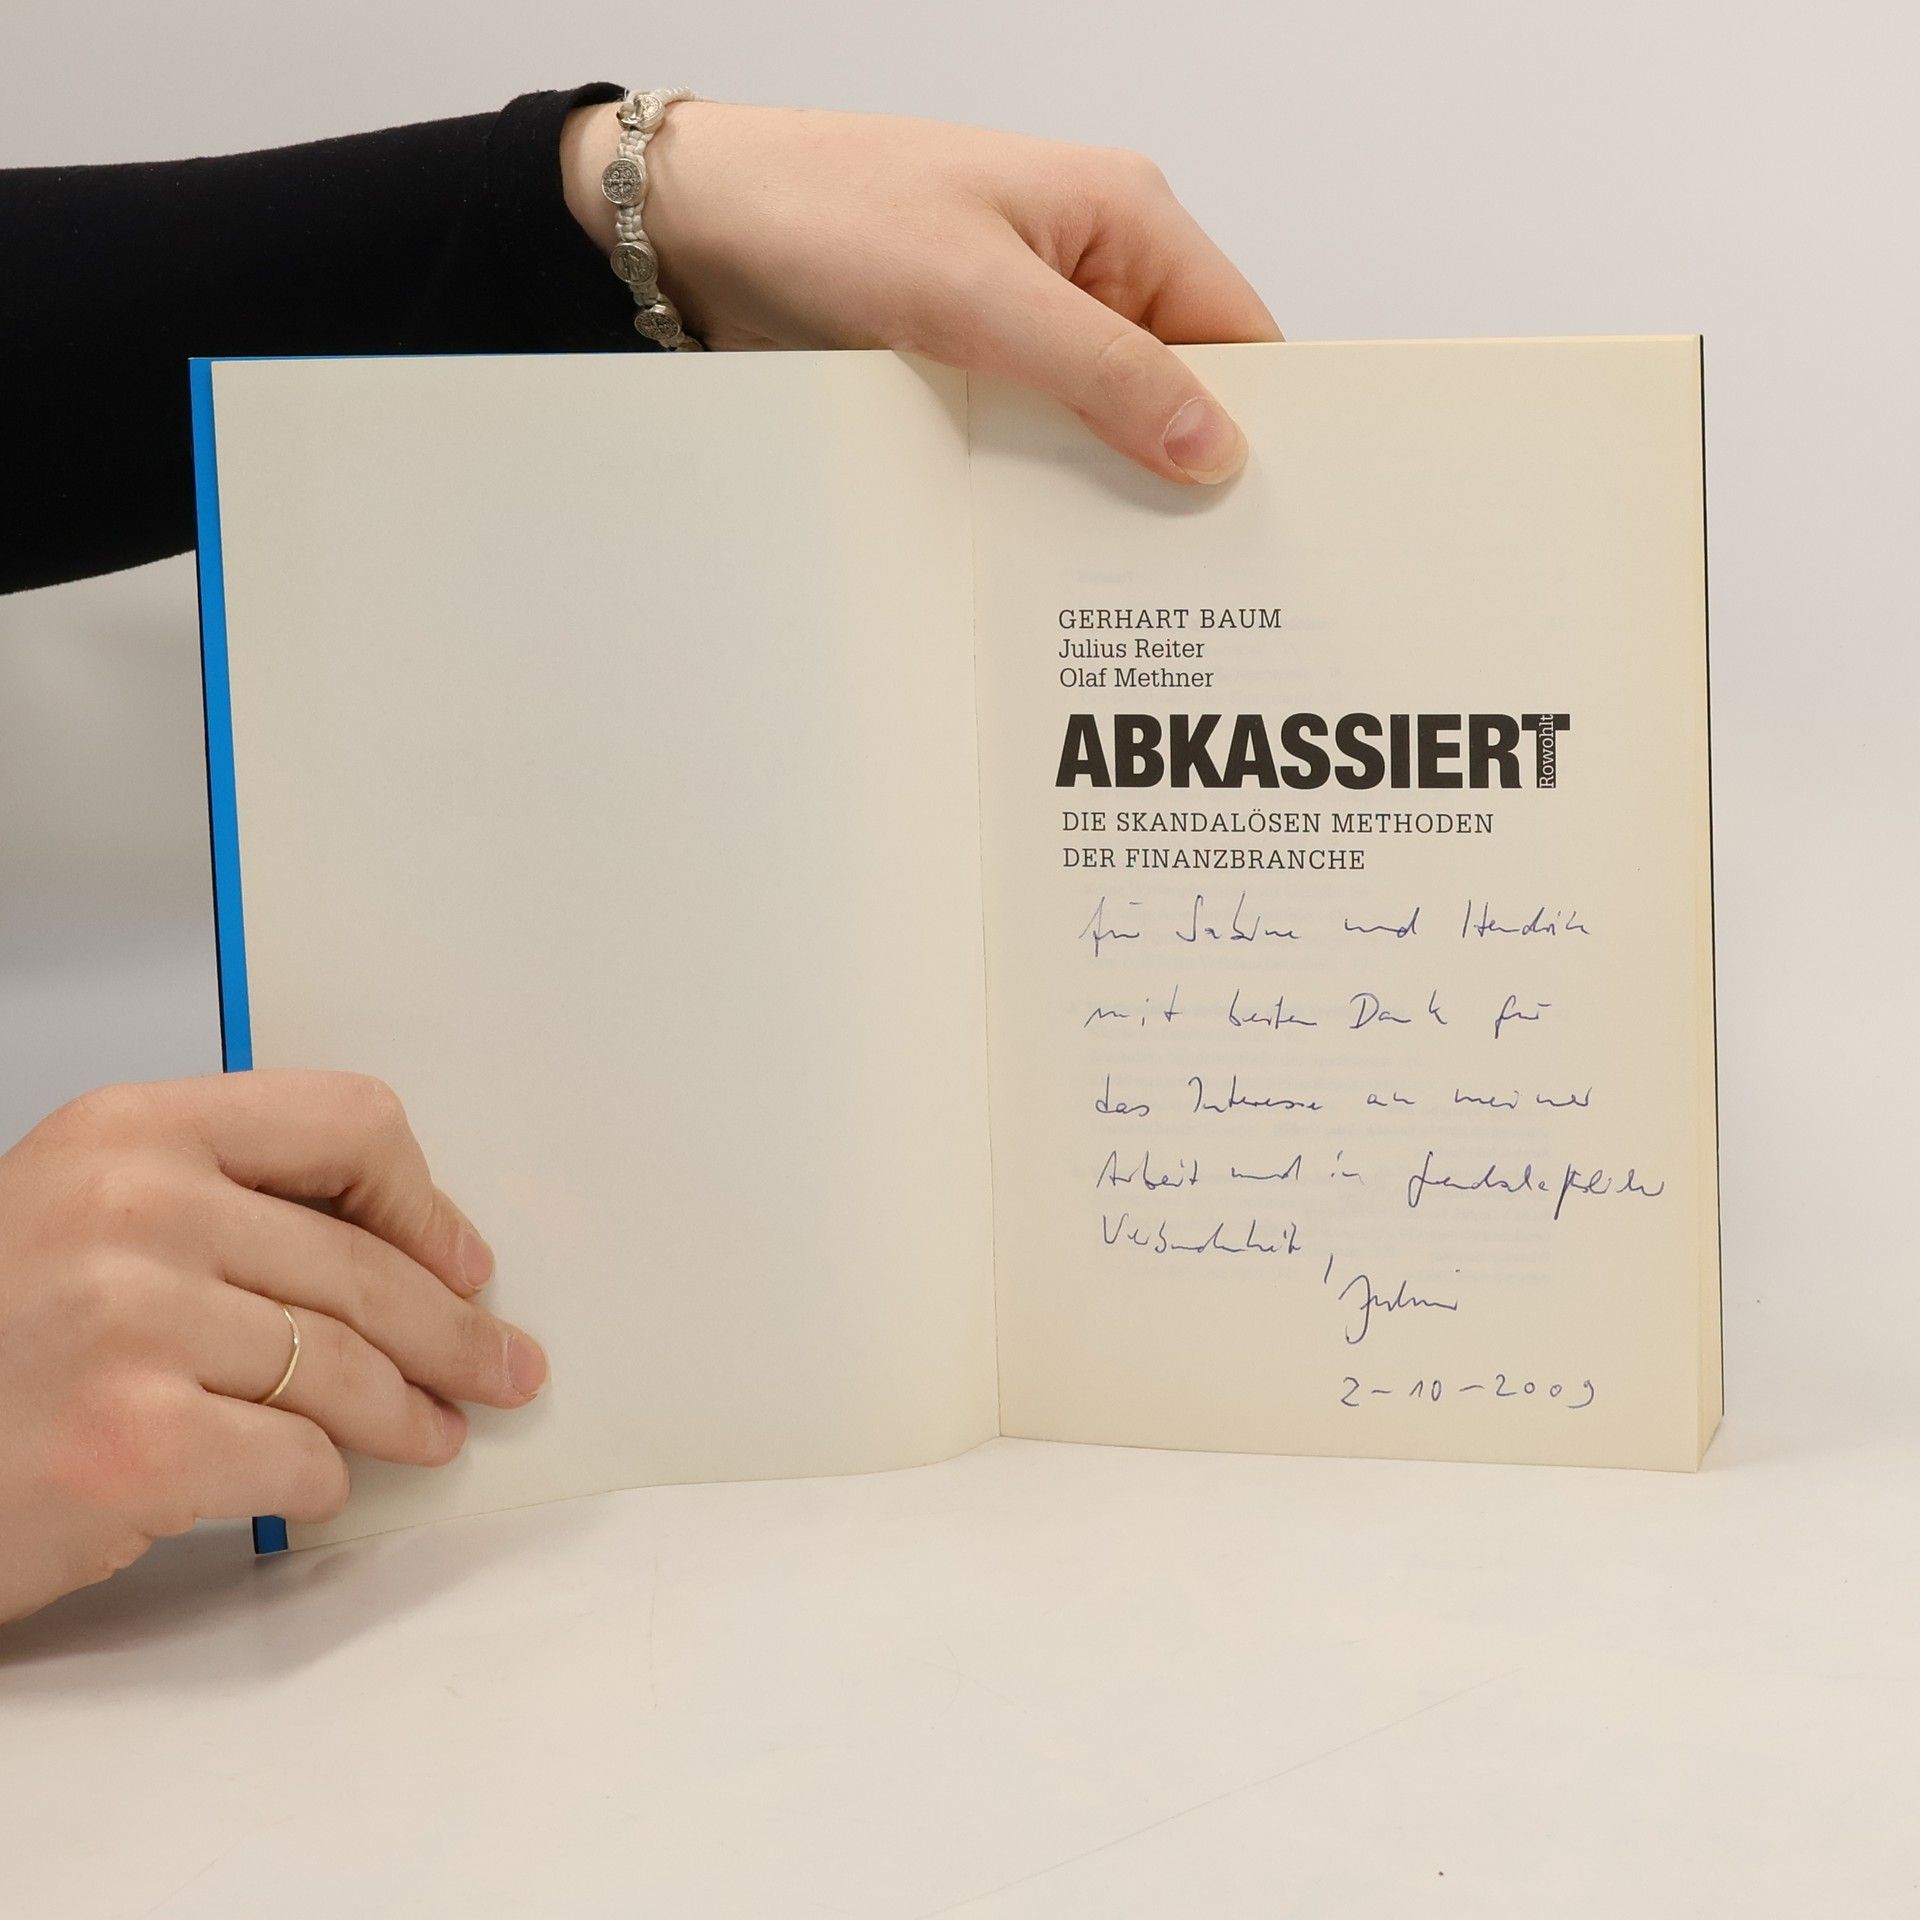 GERHART BAUM
Julius Reiter
Olaf Methner
ABKASSIERT
Rowohlt
DIE SKANDALÖSEN METHODEN
DER FINANZBRANCHE
für Sabine und Hendrik
mit besten Dank für
das Interesse an meiner
Arbeit und in freundschaftlicher
Verbundenheit,
Julius
2-10-2009